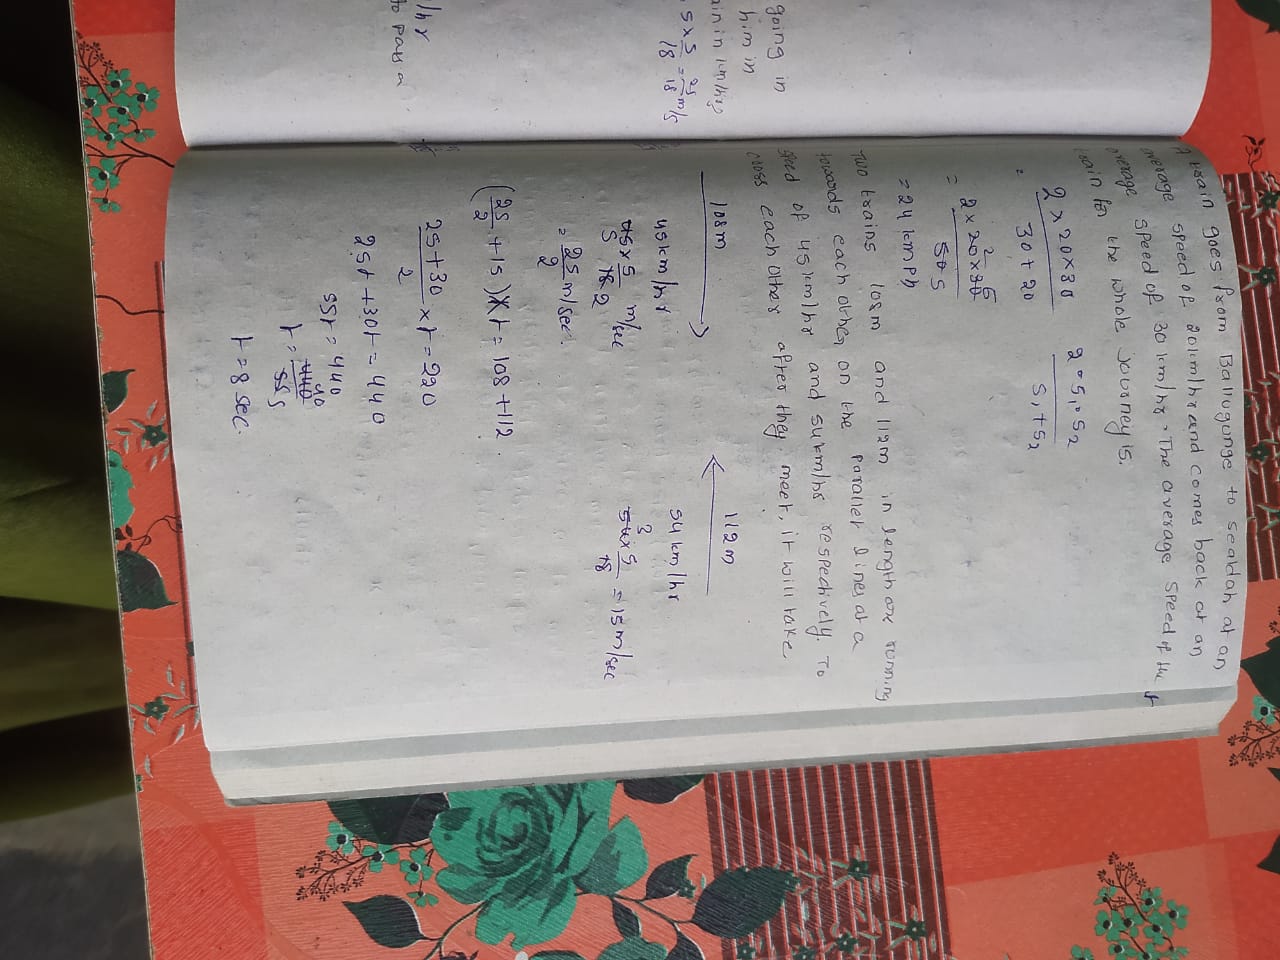 going in
him in
ain in km/hr,
. 5 × 5/18 = 25/18 m/s
/hr
to pass a
A train goes from Ballygunge to sealdah at an
average speed of 20km/hr and comes back at an
average speed of 30km/hr. The average speed of the
train for the whole journey is.
= 2 × 20 × 30 / 30 + 20
2 · S1 · S2 / S1 + S2
= 2 × 20 × 30 / 50
= 24 kmph
Two trains 108m and 112m in length are running
towards each other, on the parallel lines at a
speed of 45km/hr and 54km/hr respectively. To
cross each other after they meet, it will take
108m
112m
45km/hr
54km/hr
45 × 5/18 m/sec
54 × 5/18 = 15m/sec
= 25/2 m/sec.
(25/2 + 15) × t = 108 + 112
25 + 30 / 2 × t = 220
25t + 30t = 440
55t = 440
t = 440/55
t = 8 sec.